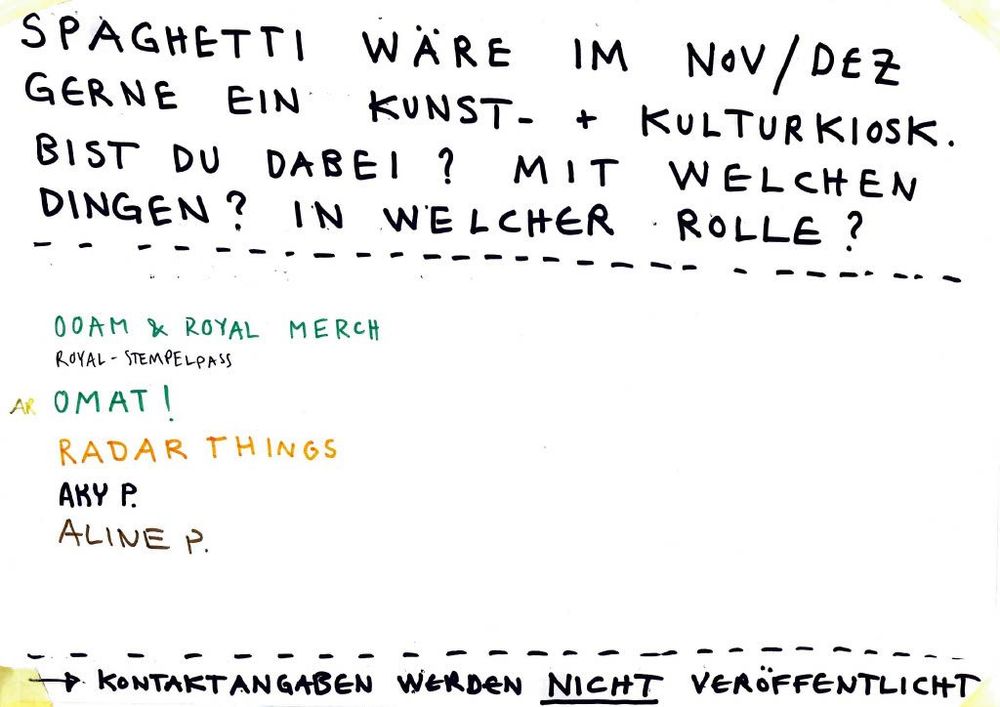 SPAGHETTI WÄRE IM NOV/DEZ
GERNE EIN KUNST- + KULTURKIOSK.
BIST DU DABEI? MIT WELCHEN
DINGEN? IN WELCHER ROLLE?
OOAM & ROYAL MERCH
ROYAL-STEMPELPASS
AR OMAT!
RADAR THINGS
AKY P.
ALINE P.
→ KONTAKTANGABEN WERDEN NICHT VERÖFFENTLICHT